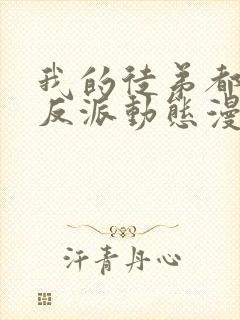 我的徒弟都
反派動態漫
汗青丹心